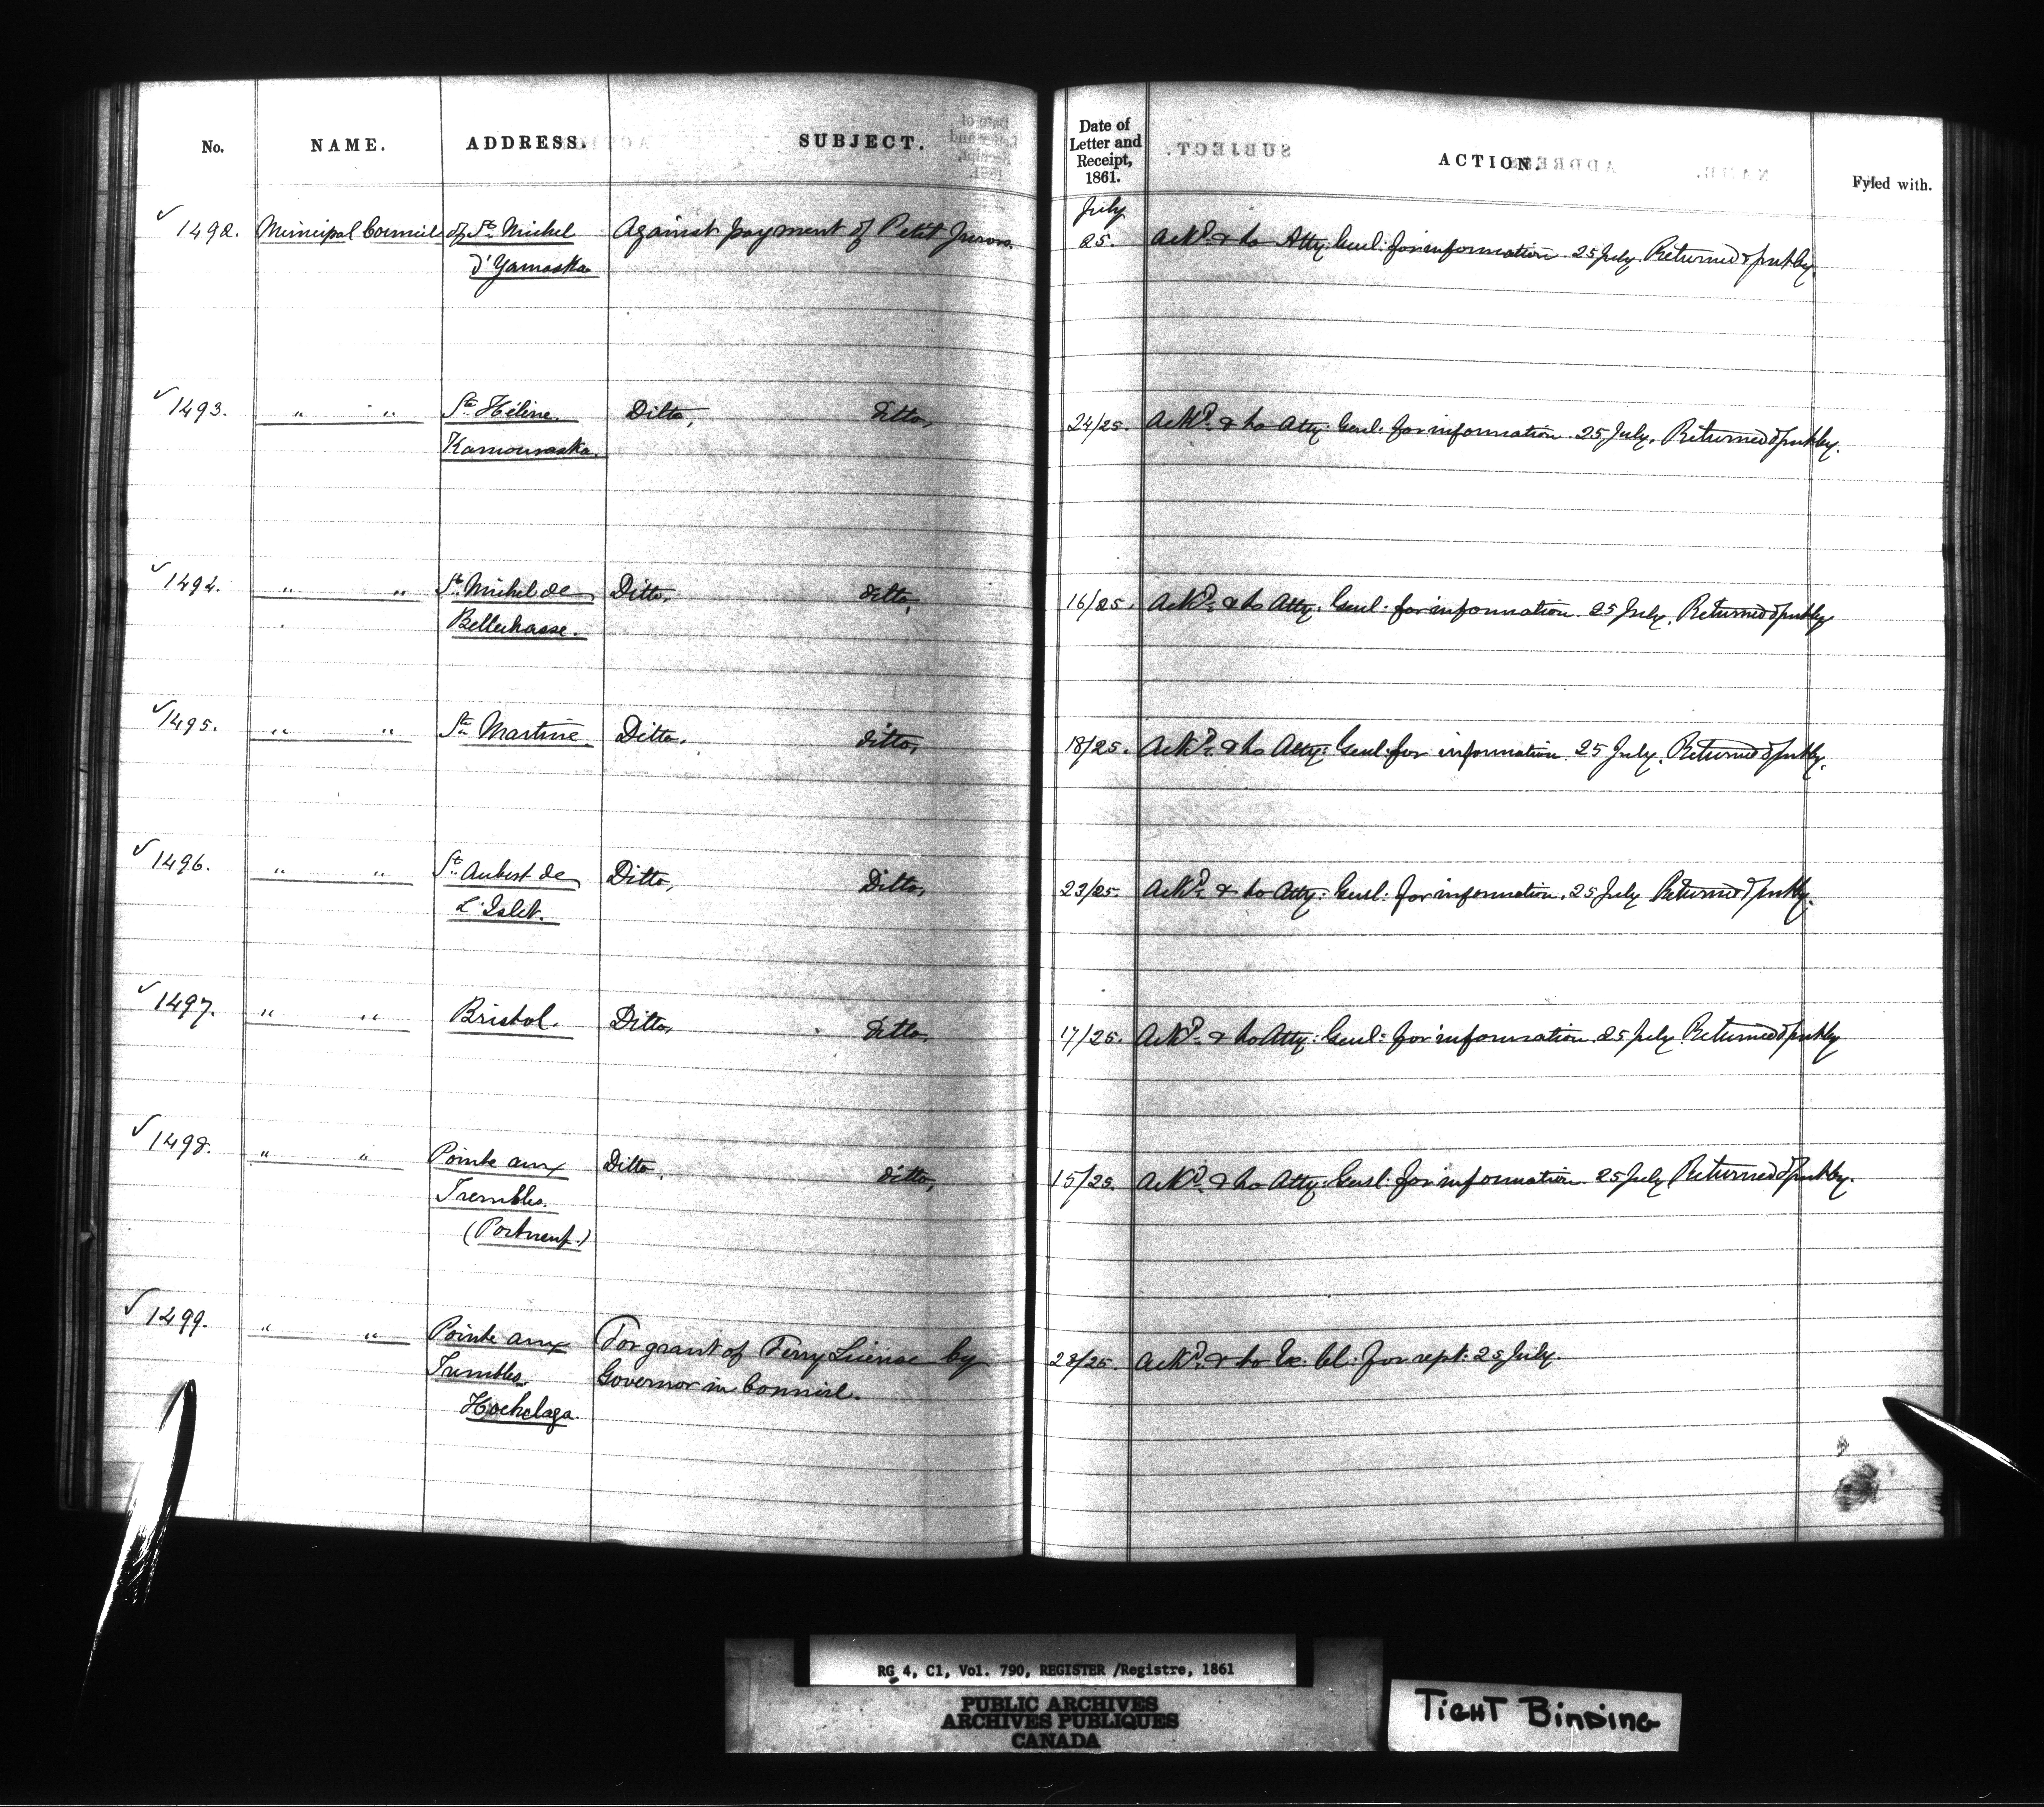 No. NAME. ADDRESS. SUBJECT. Date of Letter and Receipt, 1861. ACTION. Fyled with.
July
✓ 1492. Municipal Council of St. Michel Against payment of Petit Jurors. 25. Ackd. & to Atty: Genl: for information. 25 July. Returned & put by.
d'Yamaska
✓ 1493. " " Ste. Hélène Ditto, ditto, 24/25. Ackd. & to Atty: Genl: for information. 25 July. Returned & put by.
Kamouraska.
✓ 1494. " " St. Michel de Ditto, ditto, 16/25. Ackd. & to Atty: Genl: for information. 25 July. Returned & put by
Bellechasse.
✓ 1495. " " Ste. Martine. Ditto, ditto, 18/25. Ackd. & to Atty: Genl: for information. 25 July. Returned & put by.
✓ 1496. " " St. Aubert de Ditto, Ditto, 23/25. Ackd. & to Atty: Genl: for information. 25 July Returned & put by.
L'Islet.
✓ 1497. " " Bristol. Ditto, ditto, 17/25. Ackd. & to Atty: Genl: for information. 25 July Returned & put by
✓ 1498. " " Pointe aux Ditto, ditto, 15/25. Ackd. & to Atty: Genl: for information. 25 July Returned & put by.
Trembles.
(Portneuf.)
✓ 1499. " " Pointe aux For grant of Ferry License by 23/25. Ackd. & to Ex: Cl: for rept: 25 July.
Trembles. Governor in Council.
Hochelaga.
RG 4, C1, Vol. 790, REGISTER /Registre, 1861
PUBLIC ARCHIVES
ARCHIVES PUBLIQUES
CANADA
TIGHT BINDING